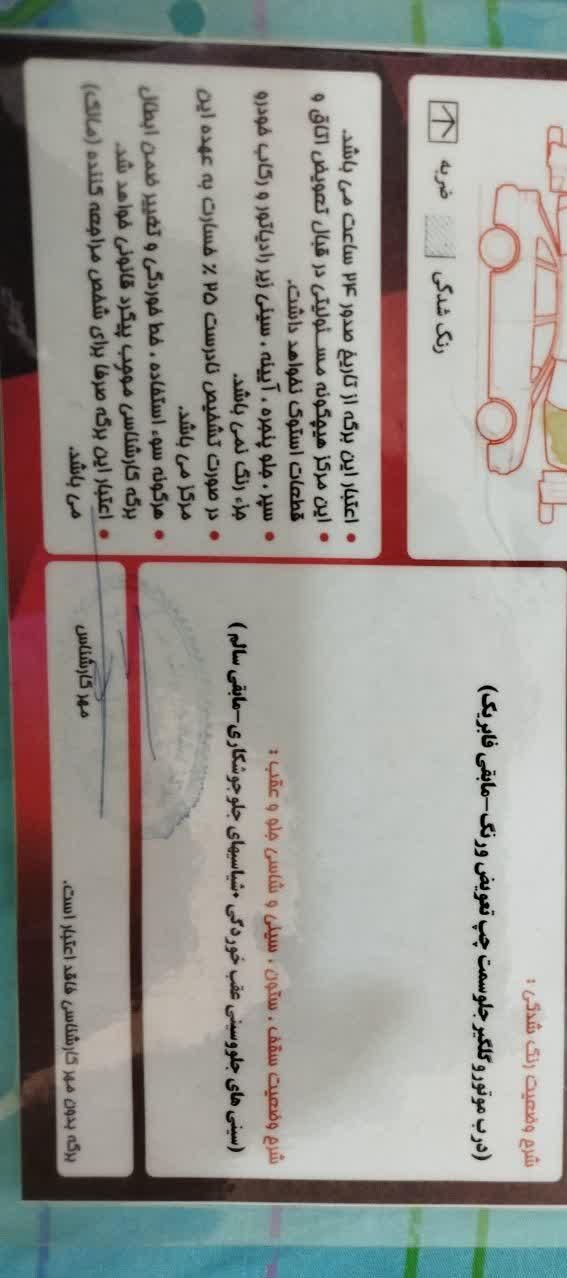 ضربه
رنگ شدگی
اعتبار این برگه از تاریخ صدور ۲۴ ساعت می باشد.
این مرکز هیچگونه مسئولیتی در قبال تعویض اتاق و
قطعات استوک نخواهد داشت.
سپر ، جلو پنجره ، آیینه ، سینی زیر رادیاتور و رکاب خودرو
جزء رنگ نمی باشد.
در صورت تشخیص نادرست ۲۵ ٪ خسارت به عهده این
مرکز می باشد.
هرگونه سوء استفاده ، خط خوردگی و تغییر ضمن ابطال
برگه کارشناسی موجب پیگرد قانونی خواهد شد.
اعتبار این برگه صرفا برای شخص مراجعه کننده (مالک)
می باشد.
شرح وضعیت رنگ شدگی :
(درب موتور و گلگیر جلو سمت چپ تعویض و رنگ-مابقی فابریک)
شرح وضعیت سقف ، ستون ، سینی و شاسی جلو و عقب :
(سینی های جلو وسینی عقب خوردگی +شاسیهای جلو جوشکاری-مابقی سالم)
مهر کارشناس
برگه بدون مهر کارشناسی فاقد اعتبار است.